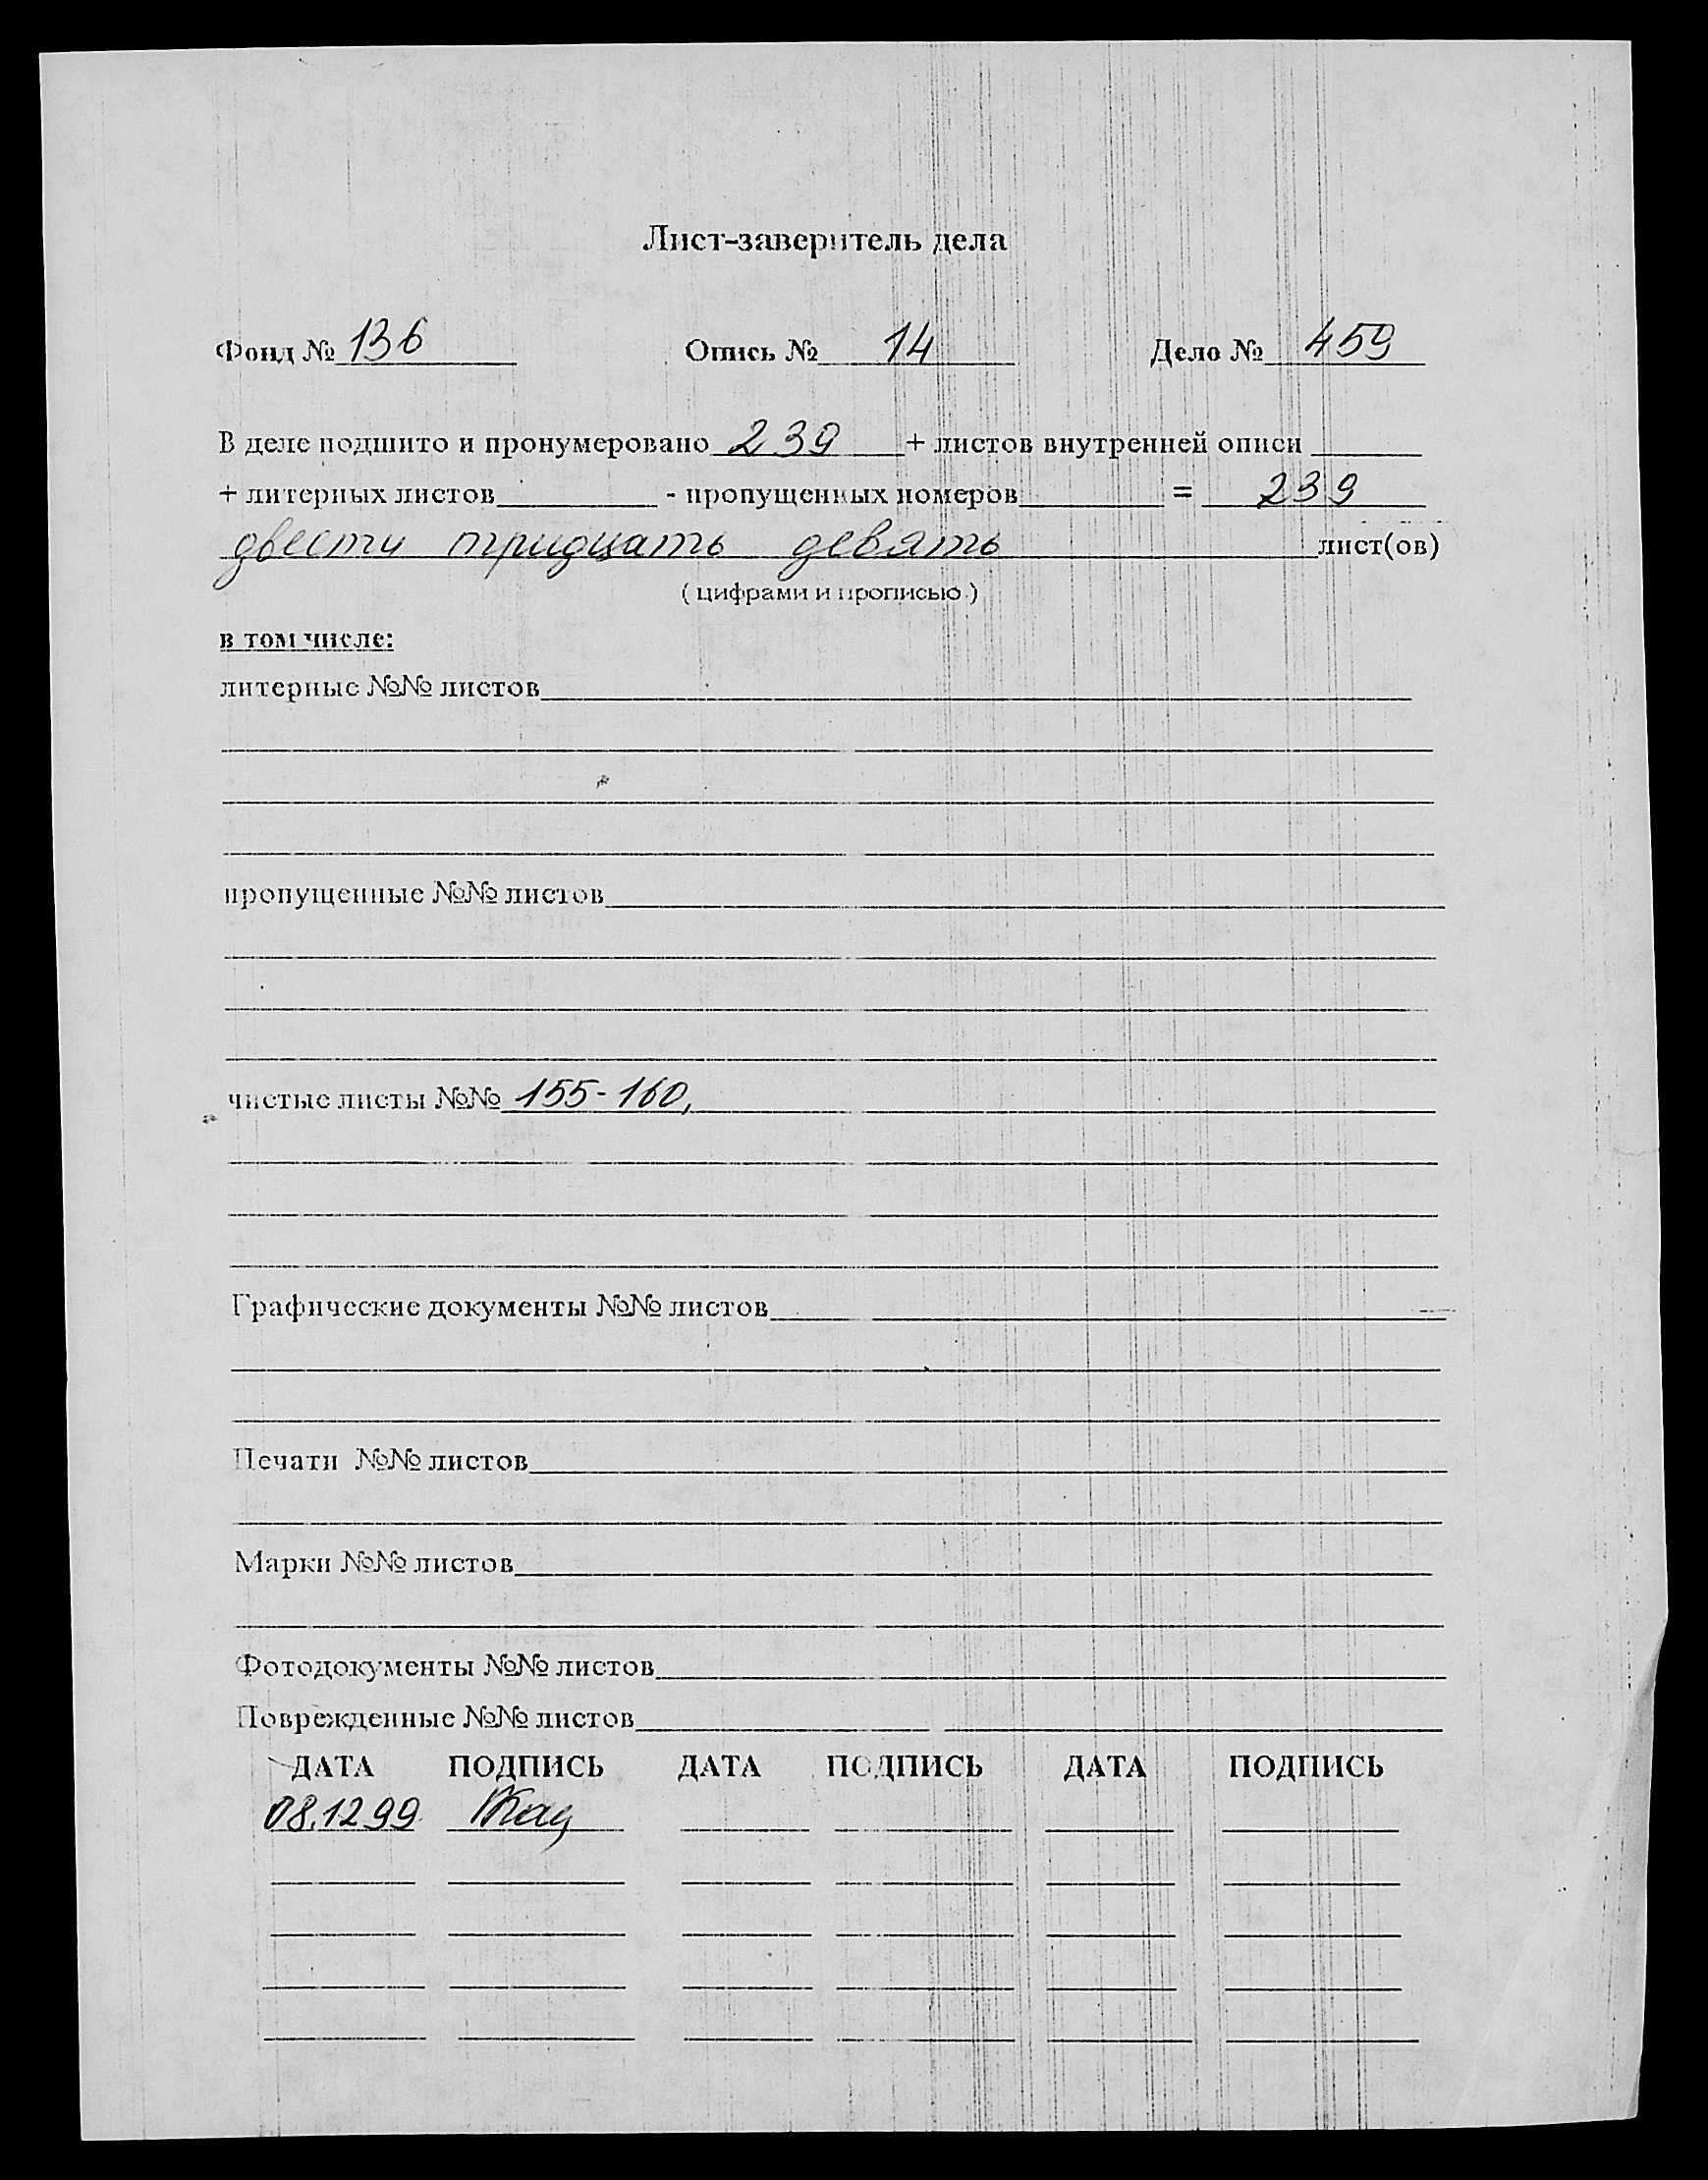 Лист-заверитель дела
Фонд № 136 Опись № 14 Дело № 459
В деле подшито и пронумеровано 239 + листов внутренней описи
+ литерных листов - пропущенных номеров = 239
двести тридцать девять лист(ов)
( цифрами и прописью )
в том числе:
литерные №№ листов
пропущенные №№ листов
чистые листы №№ 155-160,
Графические документы №№ листов
Печати №№ листов
Марки №№ листов
Фотодокументы №№ листов
Поврежденные №№ листов
ДАТА ПОДПИСЬ ДАТА ПОДПИСЬ ДАТА ПОДПИСЬ
08.12.99